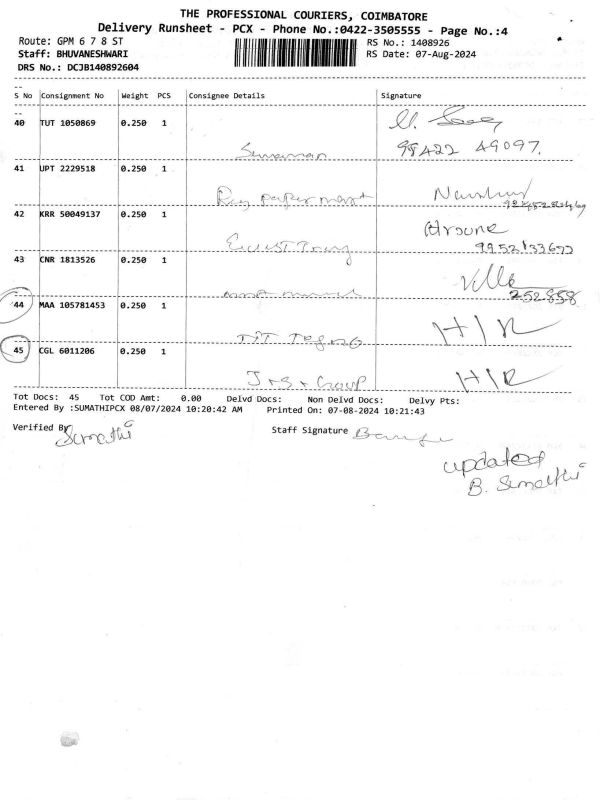 THE PROFESSIONAL COURIERS, COIMBATORE
Delivery Runsheet - PCX - Phone No.:0422-3505555 - Page No.:4
Route: GPM 6 7 8 ST
RS No.: 1408926
Staff: BHUVANESHWARI
RS Date: 07-Aug-2024
DRS No.: DCJB140892604
S No Consignment No Weight PCS Consignee Details Signature
40 TUT 1050869 0.250 1
99422 49097.
41 UPT 2229518 0.250 1
42 KRR 50049137 0.250 1
43 CNR 1813526 0.250 1
252858
44 MAA 105781453 0.250 1 H/R
45 CGL 6011206 0.250 1 H/R
Group
Tot Docs: 45 Tot COD Amt: 0.00 Delvd Docs: Non Delvd Docs: Delvy Pts:
Entered By :SUMATHIPCX 08/07/2024 10:20:42 AM Printed On: 07-08-2024 10:21:43
Verified By Sumathi Staff Signature
updated
B. Sumathi